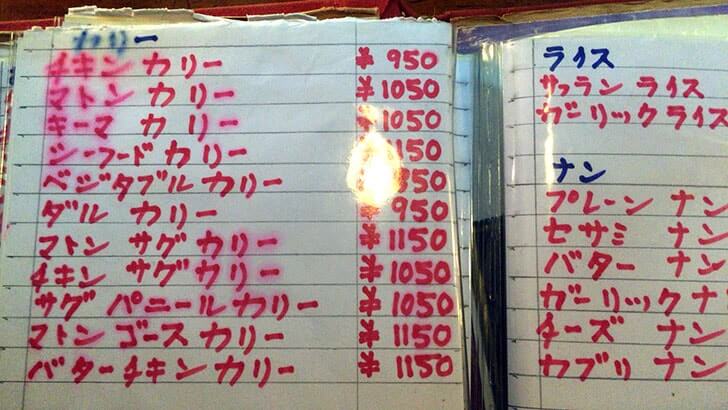 カリー
チキン カリー ¥ 950
マトン カリー ¥ 1050
キーマ カリー ¥ 1050
シーフード カリー ¥ 1150
ベジタブル カリー
ダル カリー ¥ 950
マトン サグ カリー ¥ 1150
チキン サグ カリー ¥ 1050
サグ パニール カリー ¥ 1050
マトン ゴース カリー ¥ 1150
バターチキン カリー ¥ 1150
ライス
サフラン ライス
ガーリック ライス
ナン
プレーン ナン
セサミ ナン
バター ナン
ガーリック ナン
チーズ ナン
カブリ ナン